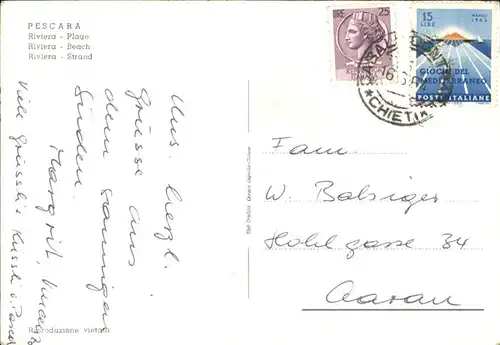 PESCARA
Riviera - Plage
Riviera - Beach
Riviera - Strand
Uns. herzl.
Grüsse aus
dem sonnigen
Süden.
Margrit,
Viele Grüssli's Kussli v.
Riproduzione vietata
25
15
LIRE
NAPOLI
1963
GIOCHI DEL
MEDITERRANEO
POSTE ITALIANE
16
CHIETI
Fam
W. Bolsiger
Hohlgasse 34
Aarau